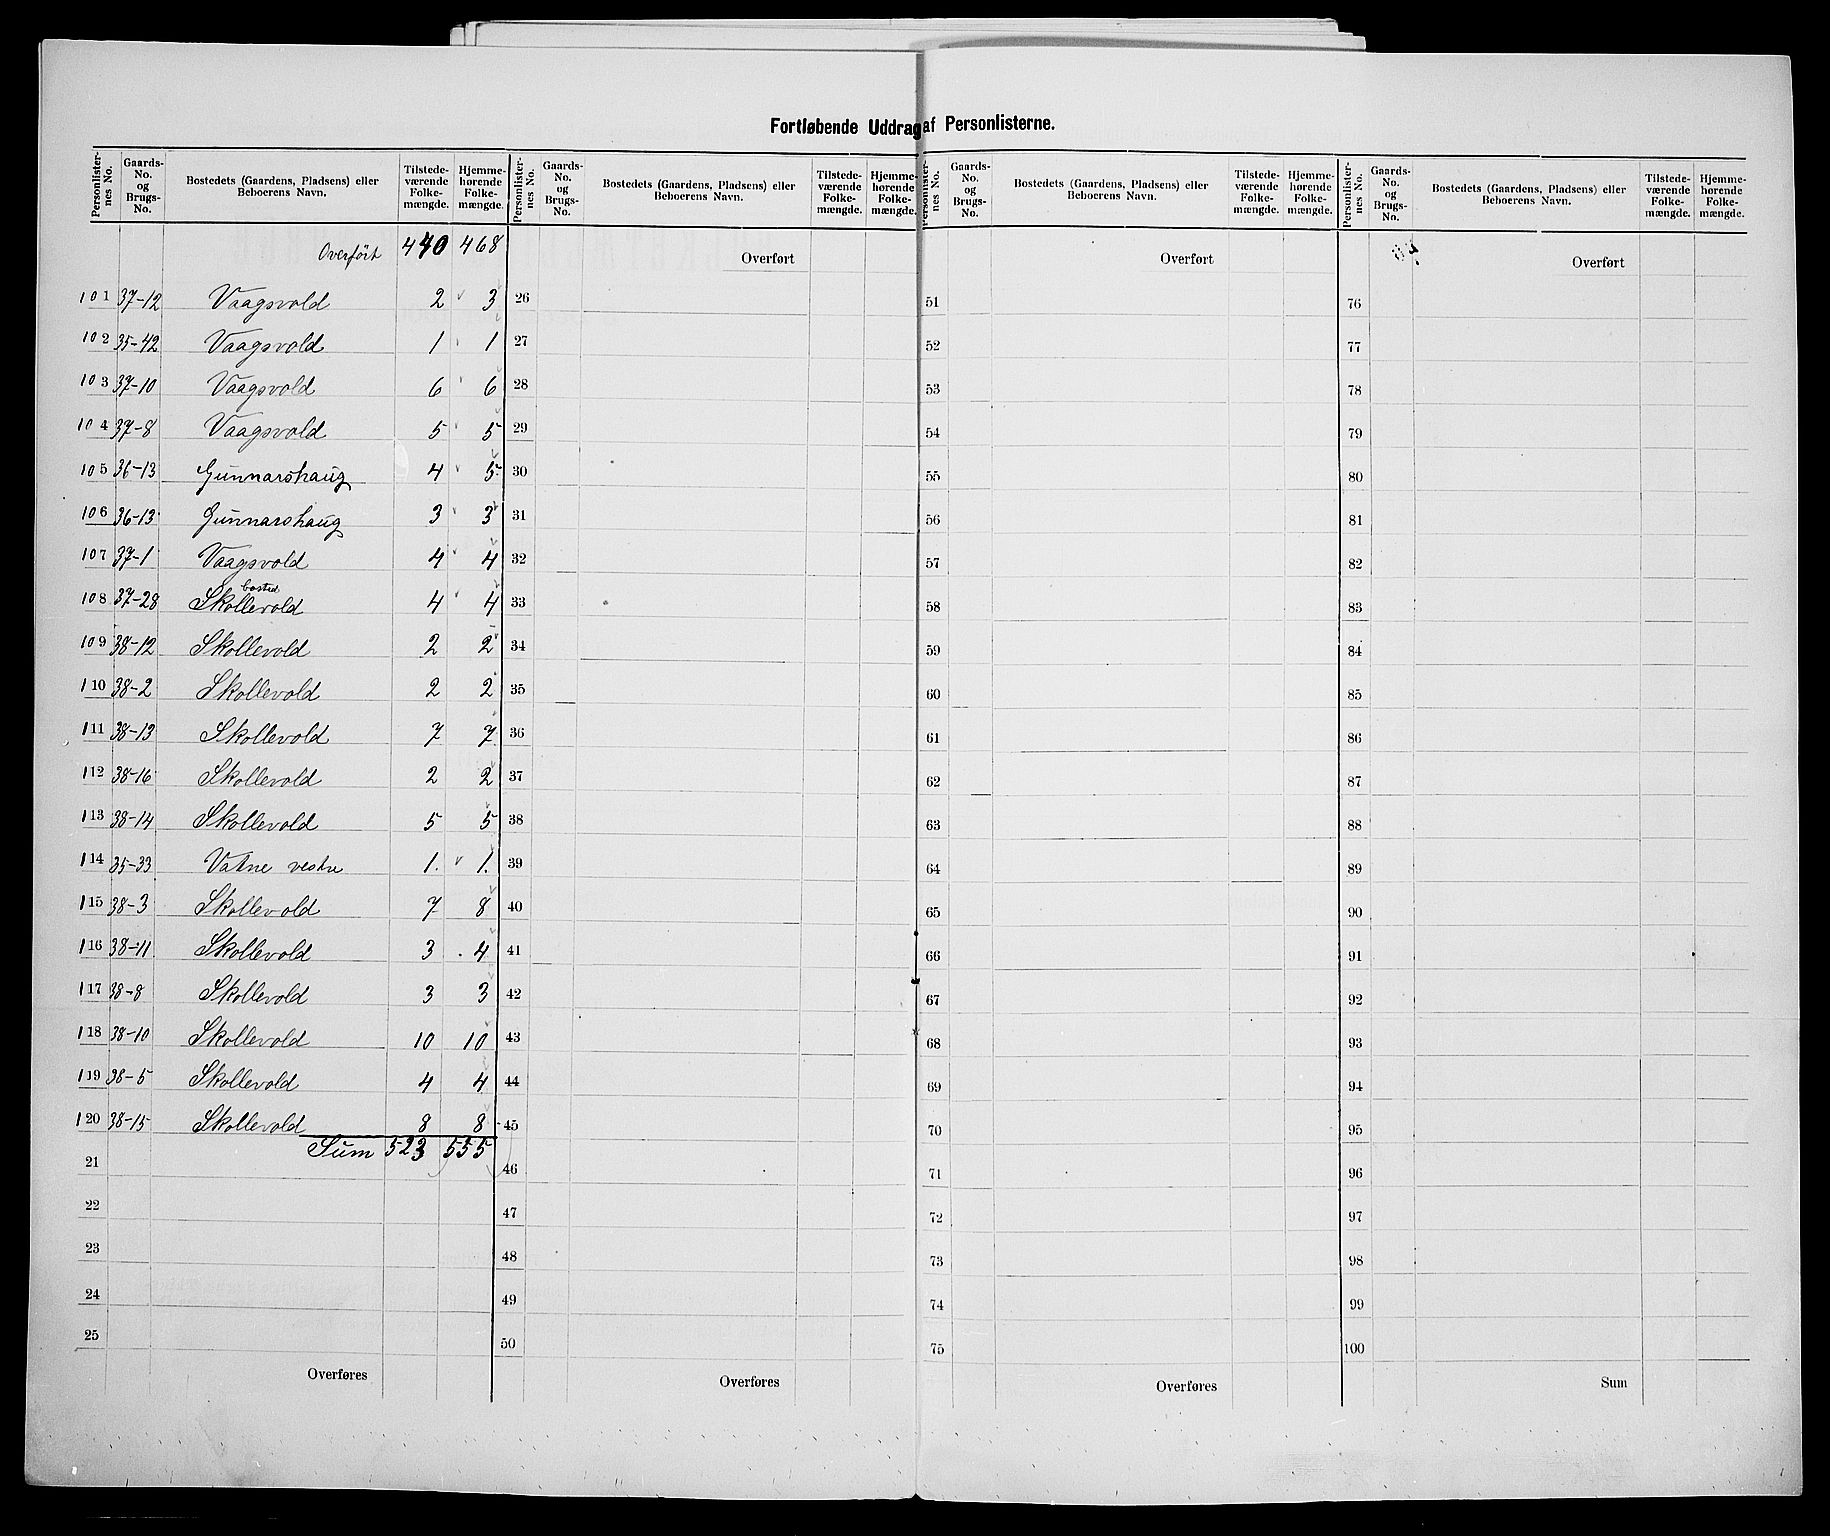 Fortløbende Uddrag af Personlisterne.
Personlister-nes No. Gaards-No. og Brugs-No. Bostedets (Gaardens, Pladsens) eller Beboerens Navn. Tilstede-værende Folke-mængde. Hjemme-hørende Folke-mængde. Personlister-nes No. Gaards-No. og Brugs-No. Bostedets (Gaardens, Pladsens) eller Beboerens Navn. Tilstede-værende Folke-mængde. Hjemme-hørende Folke-mængde. Personlister-nes No. Gaards-No. og Brugs-No. Bostedets (Gaardens, Pladsens) eller Beboerens Navn. Tilstede-værende Folke-mængde. Hjemme-hørende Folke-mængde. Personlister-nes No. Gaards-No. og Brugs-No. Bostedets (Gaardens, Pladsens) eller Beboerens Navn. Tilstede-værende Folke-mængde. Hjemme-hørende Folke-mængde.
Overført 440 468 Overført Overført Overført
101 37-12 Vaagsvold 2 3 26 51 76
102 35-42 Vaagsvold 1 1 27 52 77
103 37-10 Vaagsvold 6 6 28 53 78
104 37-8 Vaagsvold 5 5 29 54 79
105 36-13 Gunnarshaug 4 5 30 55 80
106 36-13 Gunnarshaug 3 3 31 56 81
107 37-1 Vaagsvold 4 4 32 57 82
bosted
108 37-28 Skollevold 4 4 33 58 83
109 38-12 Skollevold 2 2 34 59 84
110 38-2 Skollevold 2 2 35 60 85
111 38-13 Skollevold 7 7 36 61 86
112 38-16 Skollevold 2 2 37 62 87
113 38-14 Skollevold 5 5 38 63 88
114 35-33 Vatne vestre 1. 1. 39 64 89
115 38-3 Skollevold 7 8 40 65 90
116 38-11 Skollevold 3 4 41 66 91
117 38-8 Skollevold 3 3 42 67 92
118 38-10 Skollevold 10 10 43 68 93
119 38-5 Skollevold 4 4 44 69 94
120 38-15 Skollevold 8 8 45 70 95
Sum 523 555
21 46 71 96
22 47 72 97
23 48 73 98
24 49 74 99
25 50 75 100
Overføres Overføres Overføres Sum